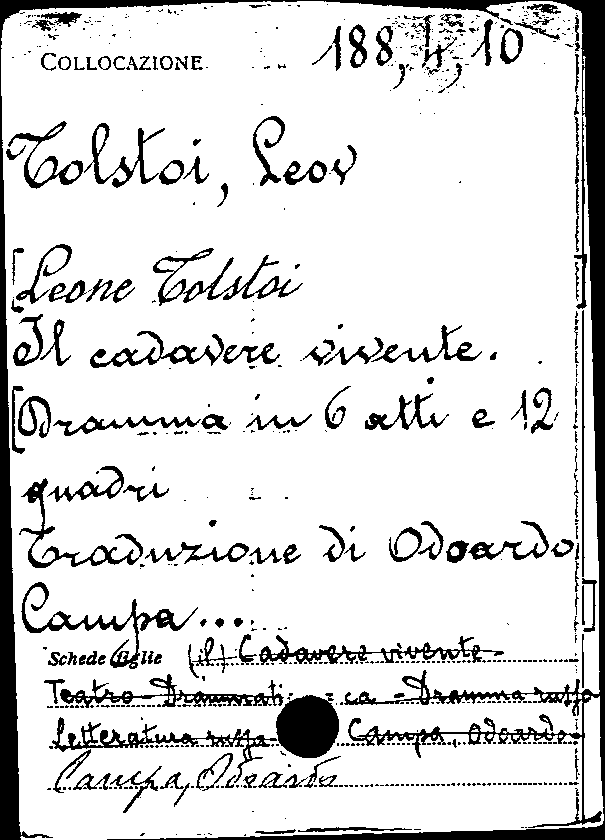 COLLOCAZIONE 188,4,10
Tolstoi, Leov
[Leone Tolstoi]
Il cadavere vivente.
[Dramma in 6 atti e 12
quadri
Traduzione di Odoardo
Campa...]
Schede figlie (il) Cadavere vivente -
Teatro - Drammati = ca - Dramma russo
Letteratura russa - Campa, Odoardo -
Campa, Odoardo